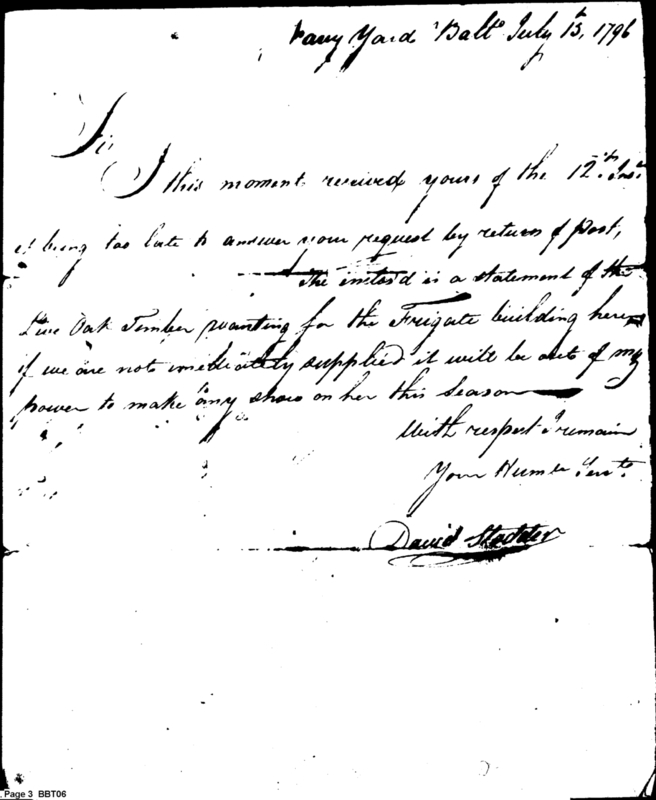 Navy Yard Balto July 13th, 1796
Sir
I this moment received yours of the 12th Inst
it being too late to answer your request by return of post,
The inclos'd is a statement of the
Live Oak Timber wanting for the Frigate building here
if we are not imediately supplied it will be out of my
power to make any show on her this season
With respect I remain
Your Humle Servt.
David Stodder
Page 3 BBT06